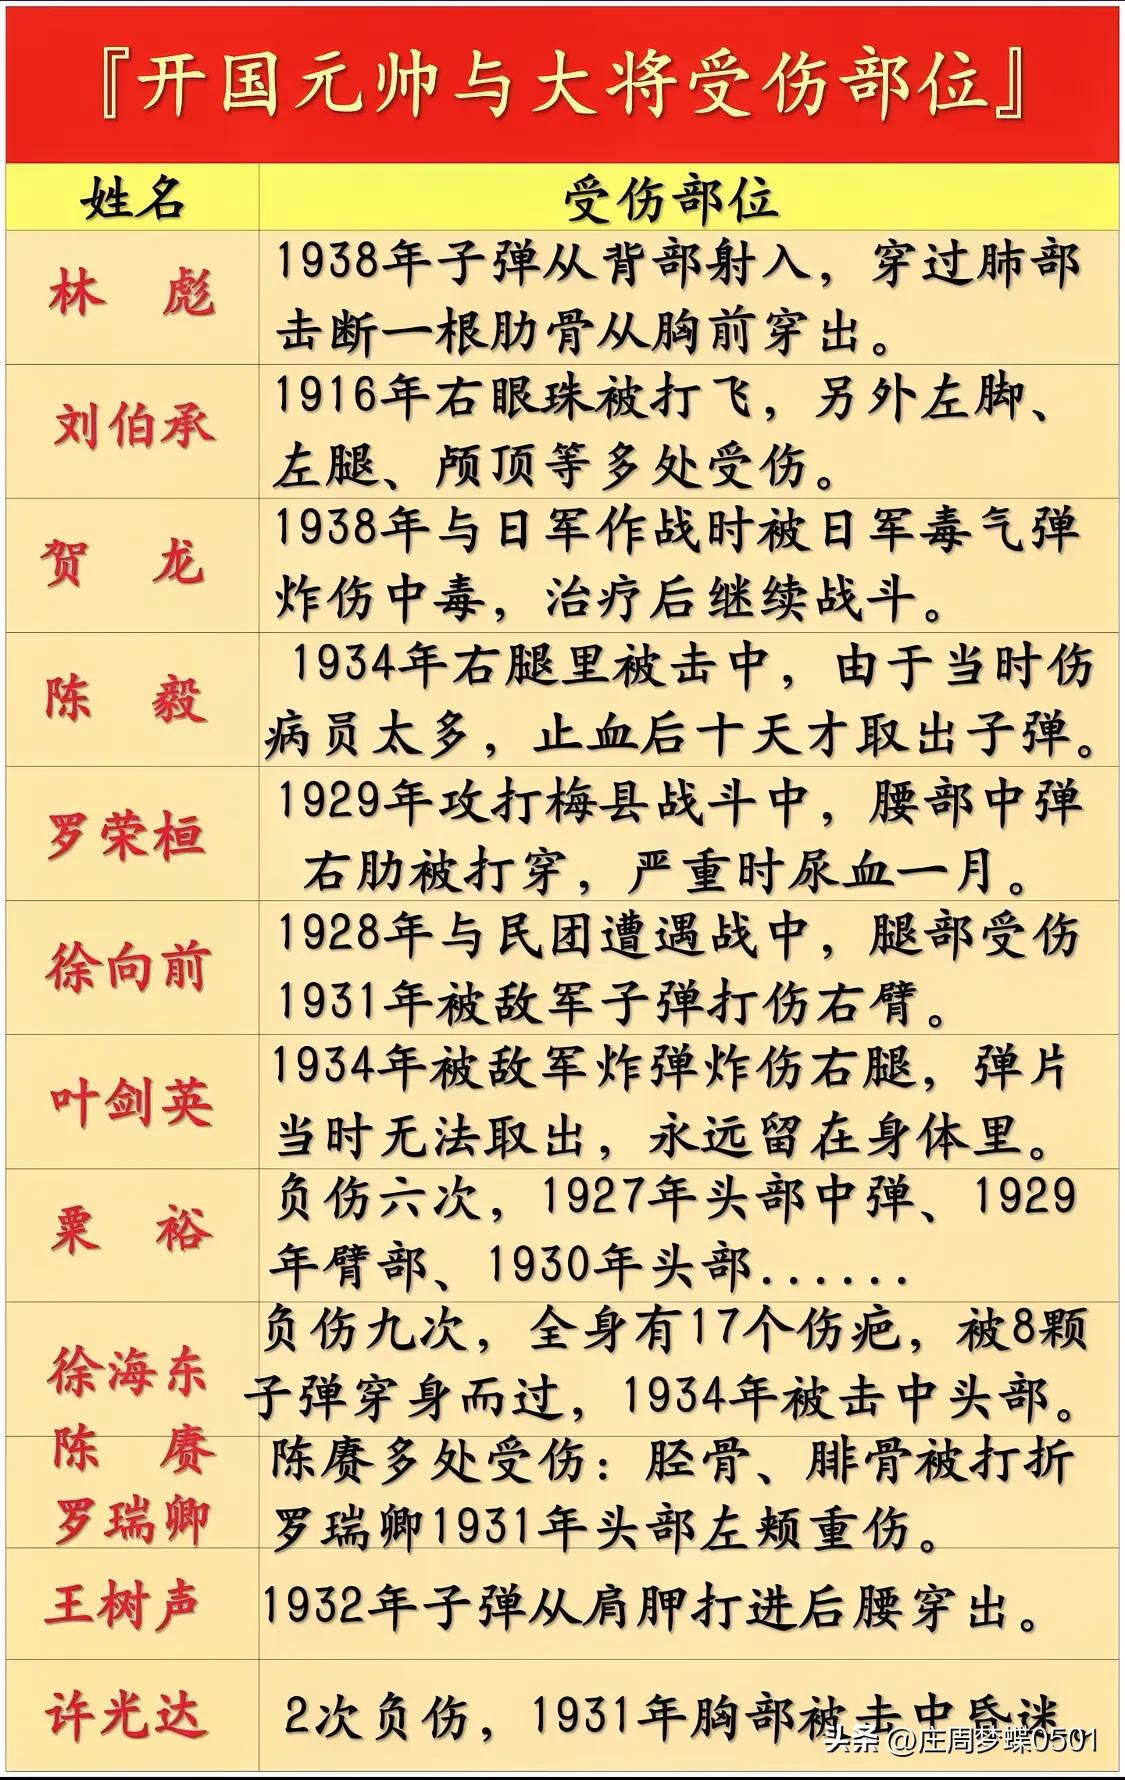 『开国元帅与大将受伤部位』
姓名 受伤部位
林彪 1938年子弹从背部射入，穿过肺部
击断一根肋骨从胸前穿出。
刘伯承 1916年右眼珠被打飞，另外左脚、
左腿、颅顶等多处受伤。
贺龙 1938年与日军作战时被日军毒气弹
炸伤中毒，治疗后继续战斗。
陈毅 1934年右腿里被击中，由于当时伤
病员太多，止血后十天才取出子弹。
罗荣桓 1929年攻打梅县战斗中，腰部中弹
右肋被打穿，严重时尿血一月。
徐向前 1928年与民团遭遇战中，腿部受伤
1931年被敌军子弹打伤右臂。
叶剑英 1934年被敌军炸弹炸伤右腿，弹片
当时无法取出，永远留在身体里。
粟裕 负伤六次，1927年头部中弹、1929
年臂部、1930年头部......
徐海东 负伤九次，全身有17个伤疤，被8颗
子弹穿身而过，1934年被击中头部。
陈赓 陈赓多处受伤：胫骨、腓骨被打折
罗瑞卿 罗瑞卿1931年头部左颊重伤。
王树声 1932年子弹从肩胛打进后腰穿出。
许光达 2次负伤，1931年胸部被击中昏迷
头条 @庄周梦蝶0501